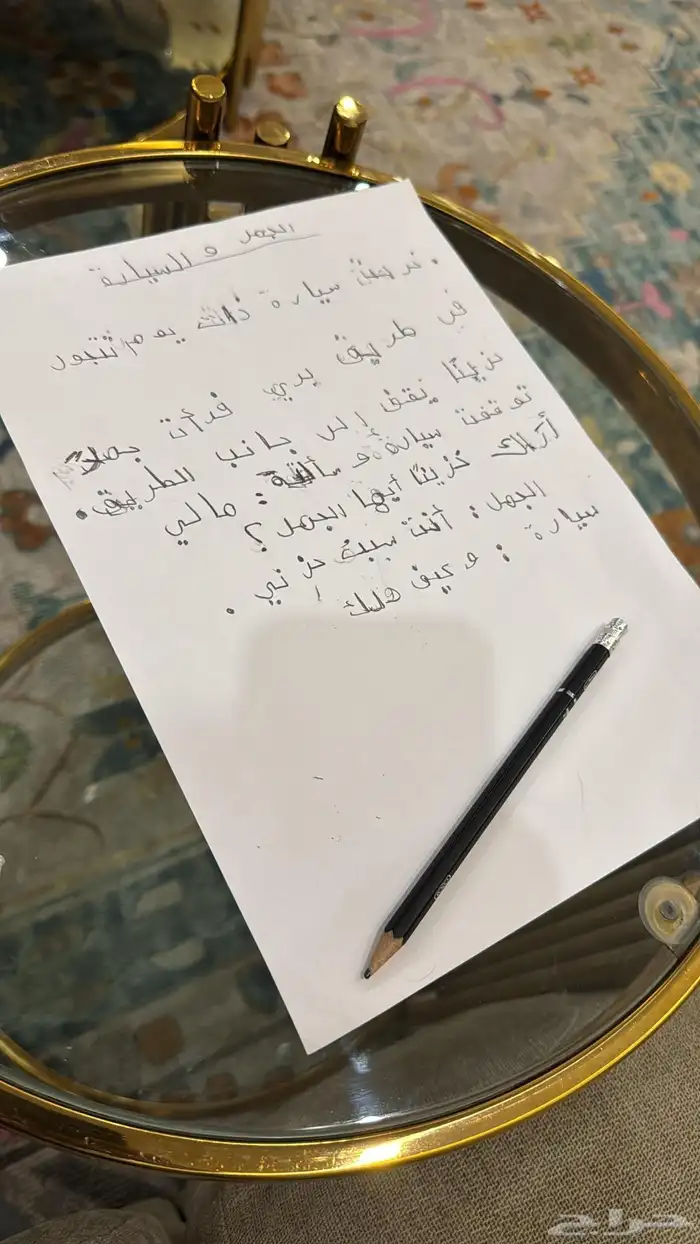 الجمل و السيارة
خرجت سيارة ذات يوم تتجول
في طريق بري فرأت جملاً
حزينًا يقف إلى جانب الطريق.
توقفت سيارة و سألته: مالي
أراك حزينًا أيها الجمل؟
الجمل: أنت سبب حزني.
سيارة: وكيف ذلك!
حراج